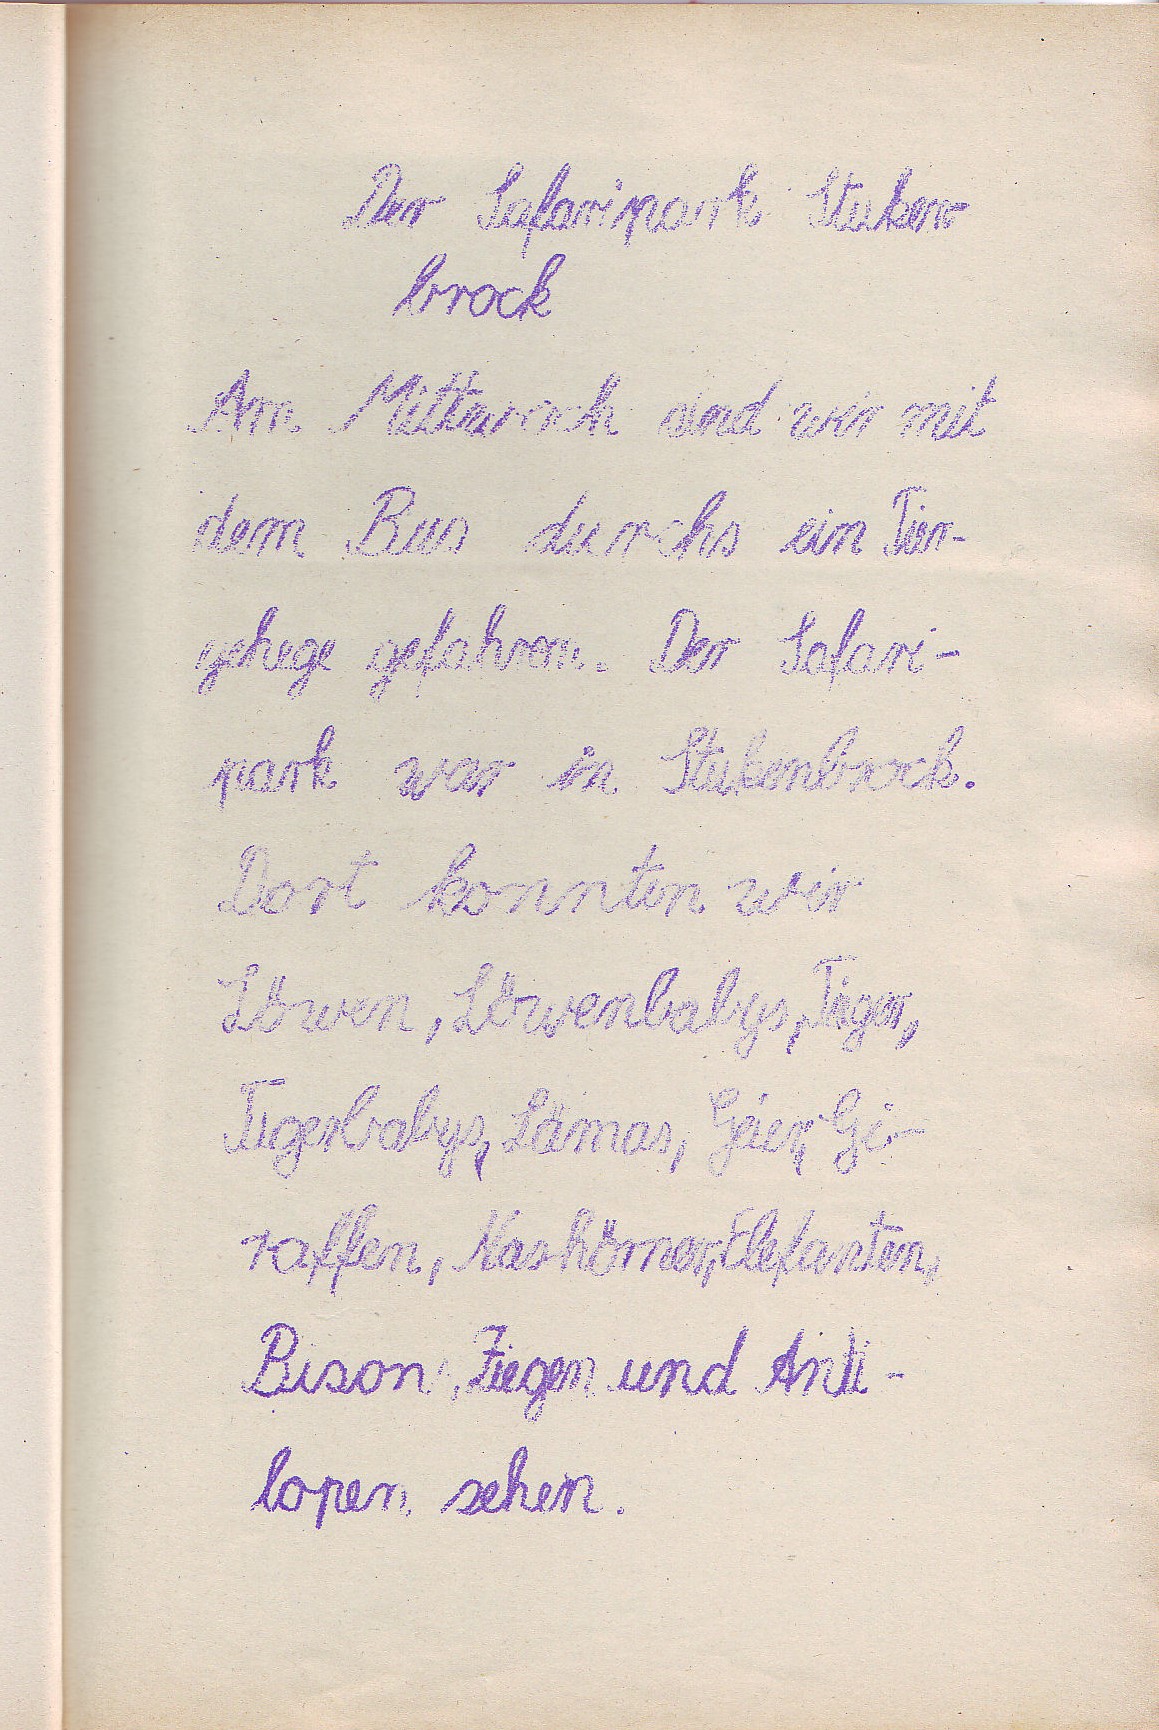 Der Safaripark Stuken-
brock
Am Mittwoch sind wir mit
dem Bus durchs ein Tier-
gehege gefahren. Der Safari-
park war in Stukenbrock.
Dort konnten wir
Löwen, Löwenbabys, Tiger,
Tigerbabys, Lämas, Geier, Gi-
raffen, Nashörner, Elefanten,
Bison, Ziegen und Anti-
lopen sehen.